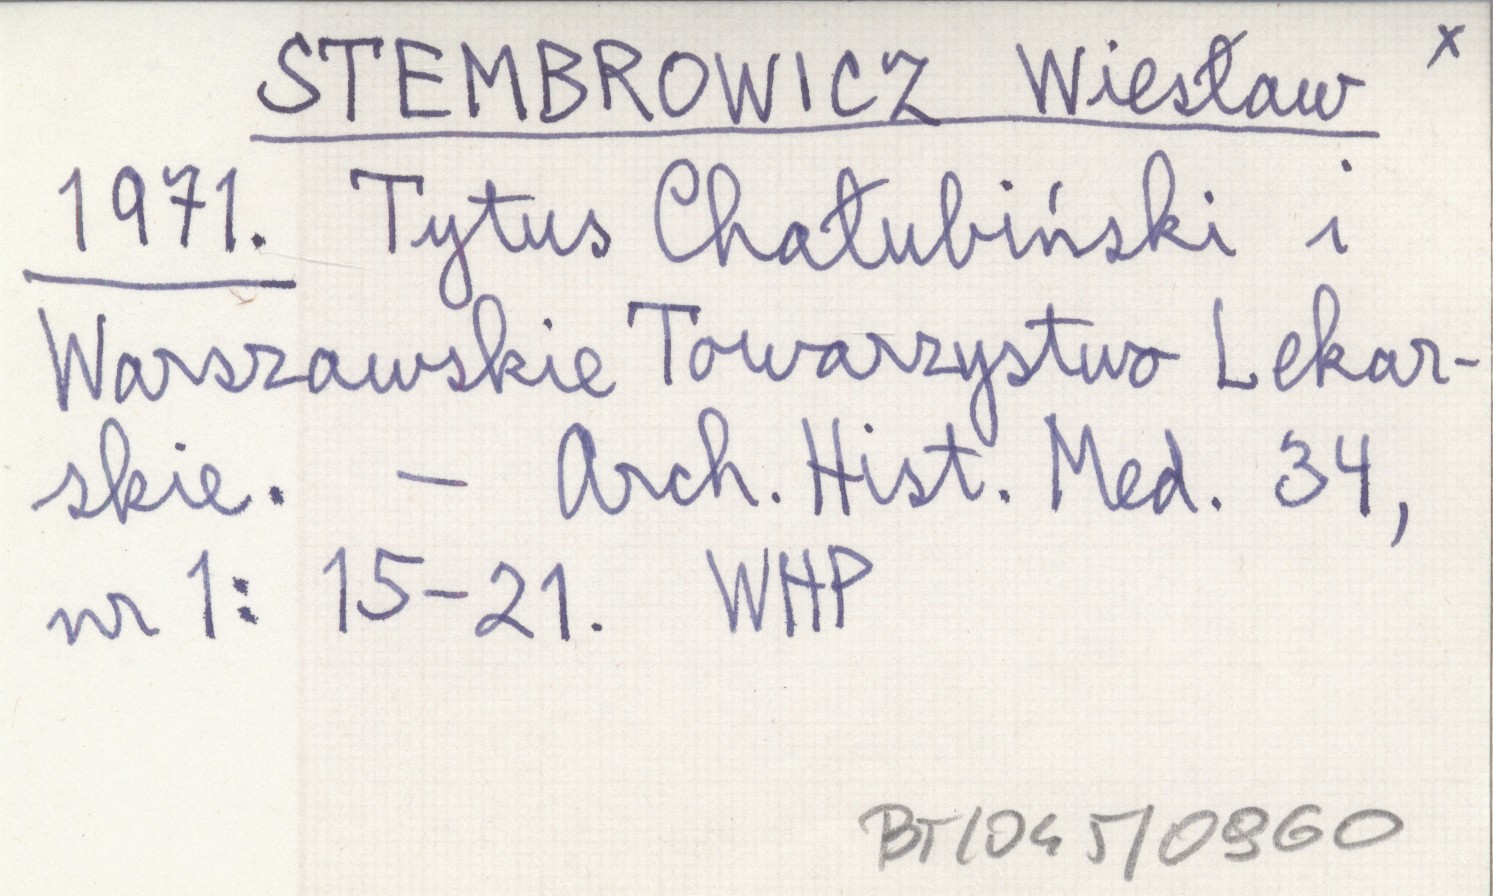 STEMBROWICZ Wiesław x
1971. Tytus Chałubiński i
Warszawskie Towarzystwo Lekar-
skie. — Arch. Hist. Med. 34,
nr 1: 15-21. WHP
BT/045/0960